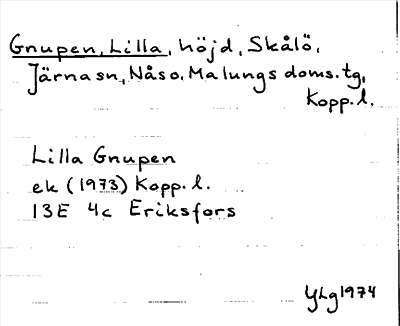 Gnupen, Lilla, höjd, Skålö,
Järnasn, Nåso, Malungs doms. tg,
Kopp. l.
Lilla Gnupen
ek (1973) Kopp. l.
13E 4c Eriksfors
YLg 1974